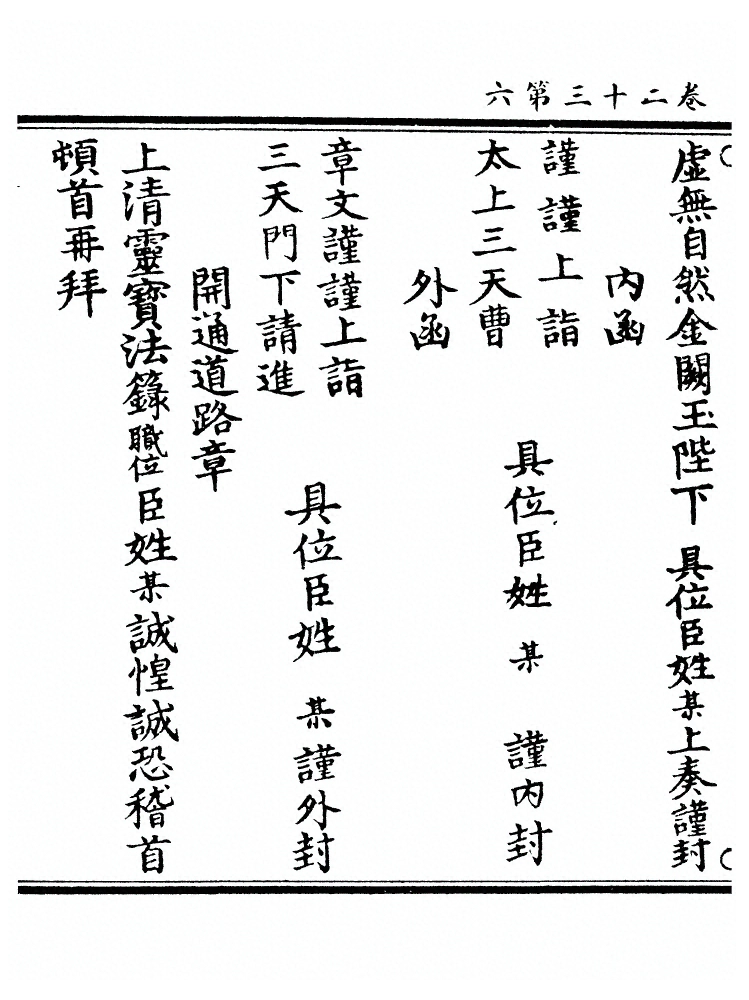 卷二十三第六
虛無自然金闕玉陛下 具位臣姓某上奏謹封
內函
謹謹上詣
太上三天曹 具位臣姓 某 謹內封
外函
章文謹謹上詣
三天門下請進 具位臣姓 某謹外封
開通道路章
上清靈寶法籙職位臣姓某誠惶誠恐稽首
頓首再拜